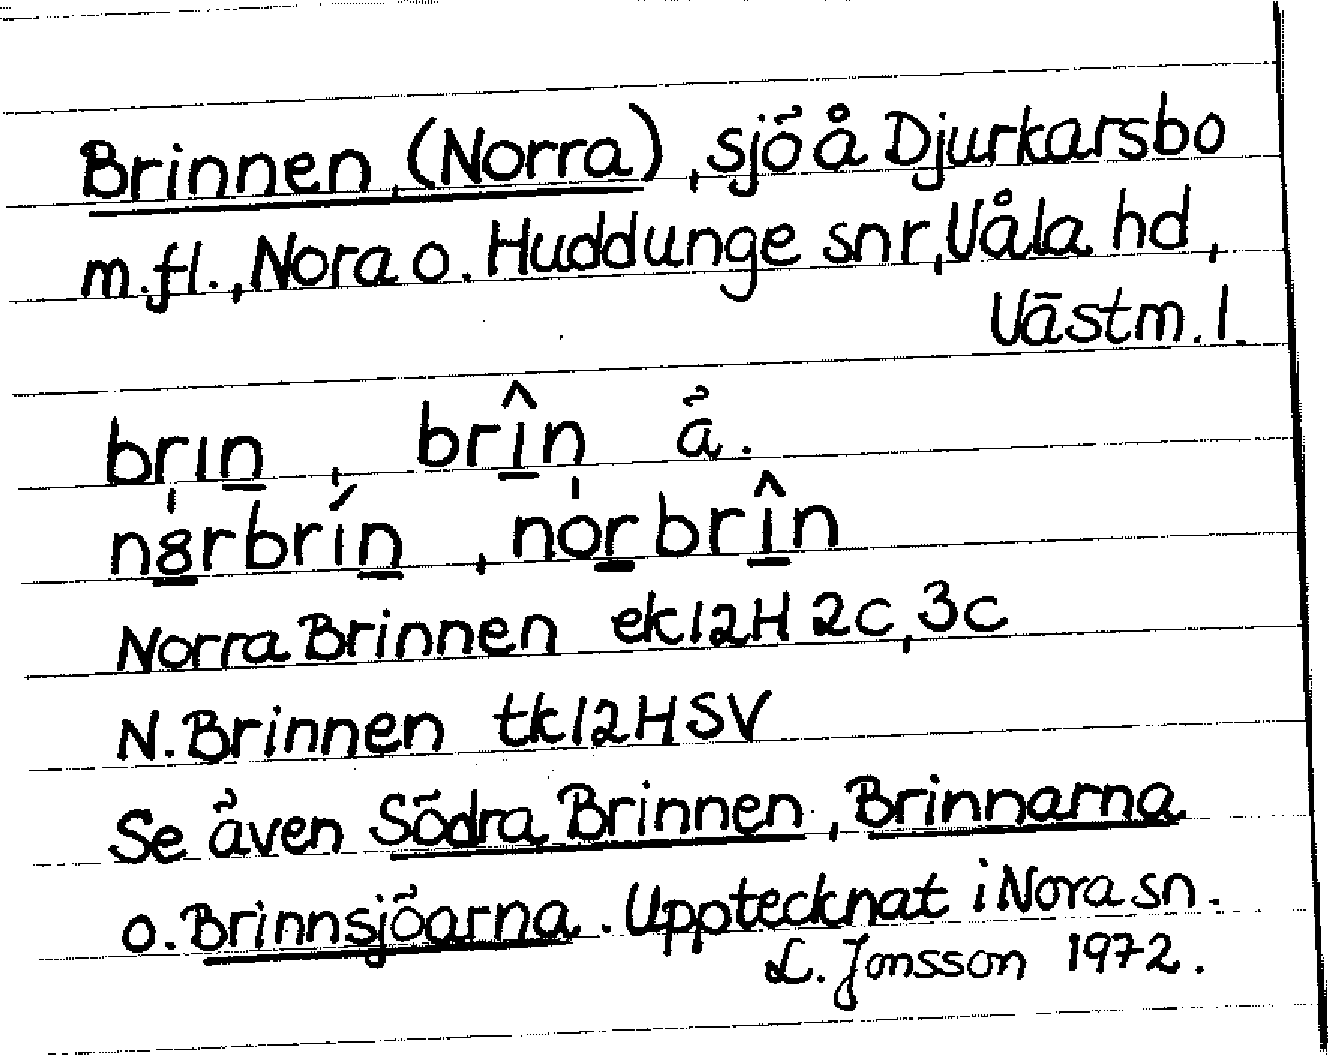 Brinnen, (Norra), sjö å Djurkarsbo
m.fl., Nora o. Huddunge snr, Våla hd,
Västm. l.
brın̲, brî̲n ä.
n8̲rbrín̲, nor̲brî̲n
Norra Brinnen ek12H 2c, 3c
N. Brinnen tk12HSV
Se även Södra Brinnen, Brinnarna
o. Brinnsjöarna. Upptecknat i Nora sn.
L. Jonsson 1972.